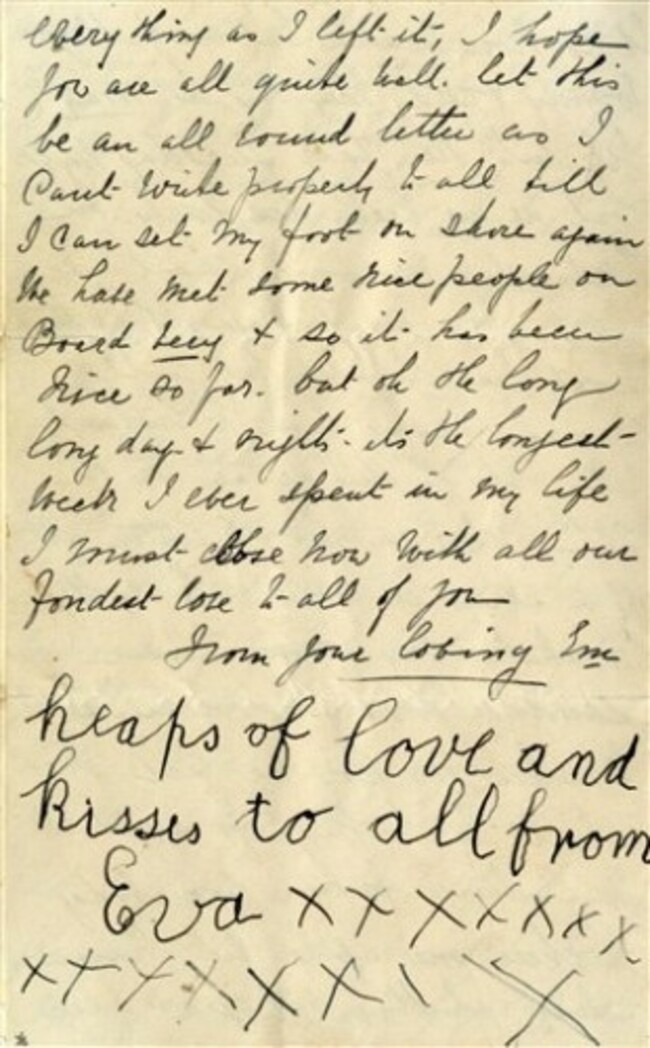 everything as I left it, I hope
you are all quite well. let this
be an all round letter as I
Cant write properly to all till
I can set my foot on shore again
We have met some nice people on
Board Lucy & so it has been
nice so far. but oh the long
long days & nights. its the longest
week I ever spent in my life
I must close now with all our
fondest love to all of you
From your loving Em
heaps of love and
kisses to all from
Eva x x x x x x x
x x x x x x \ x